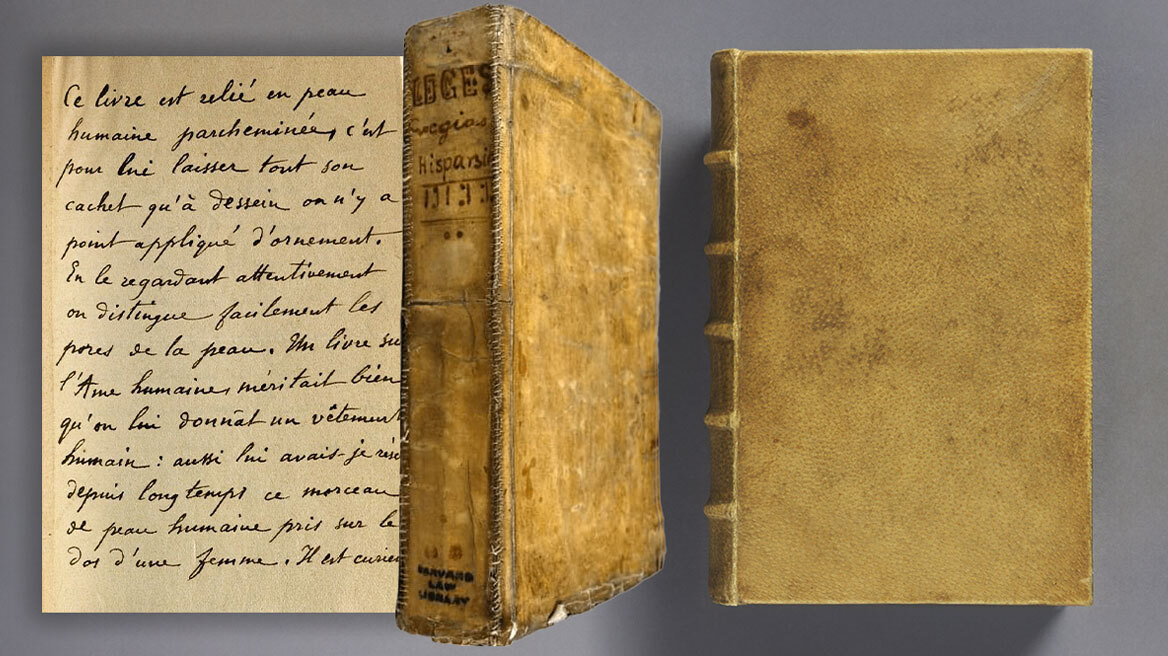 Ce livre est relié en peau
humaine parcheminée, c'est
pour lui laisser tout son
cachet qu'à dessein on n'y a
point appliqué d'ornement.
En le regardant attentivement
on distingue facilement les
pores de la peau. Un livre su
l'Ame humaine, méritait bien
qu'on lui donnât un vêtement
humain : aussi lui avais-je rés
depuis longtemps ce morceau
de peau humaine pris sur le
dos d'une femme. Il est curie
LEGES
HARVARD
LAW
LIBRARY